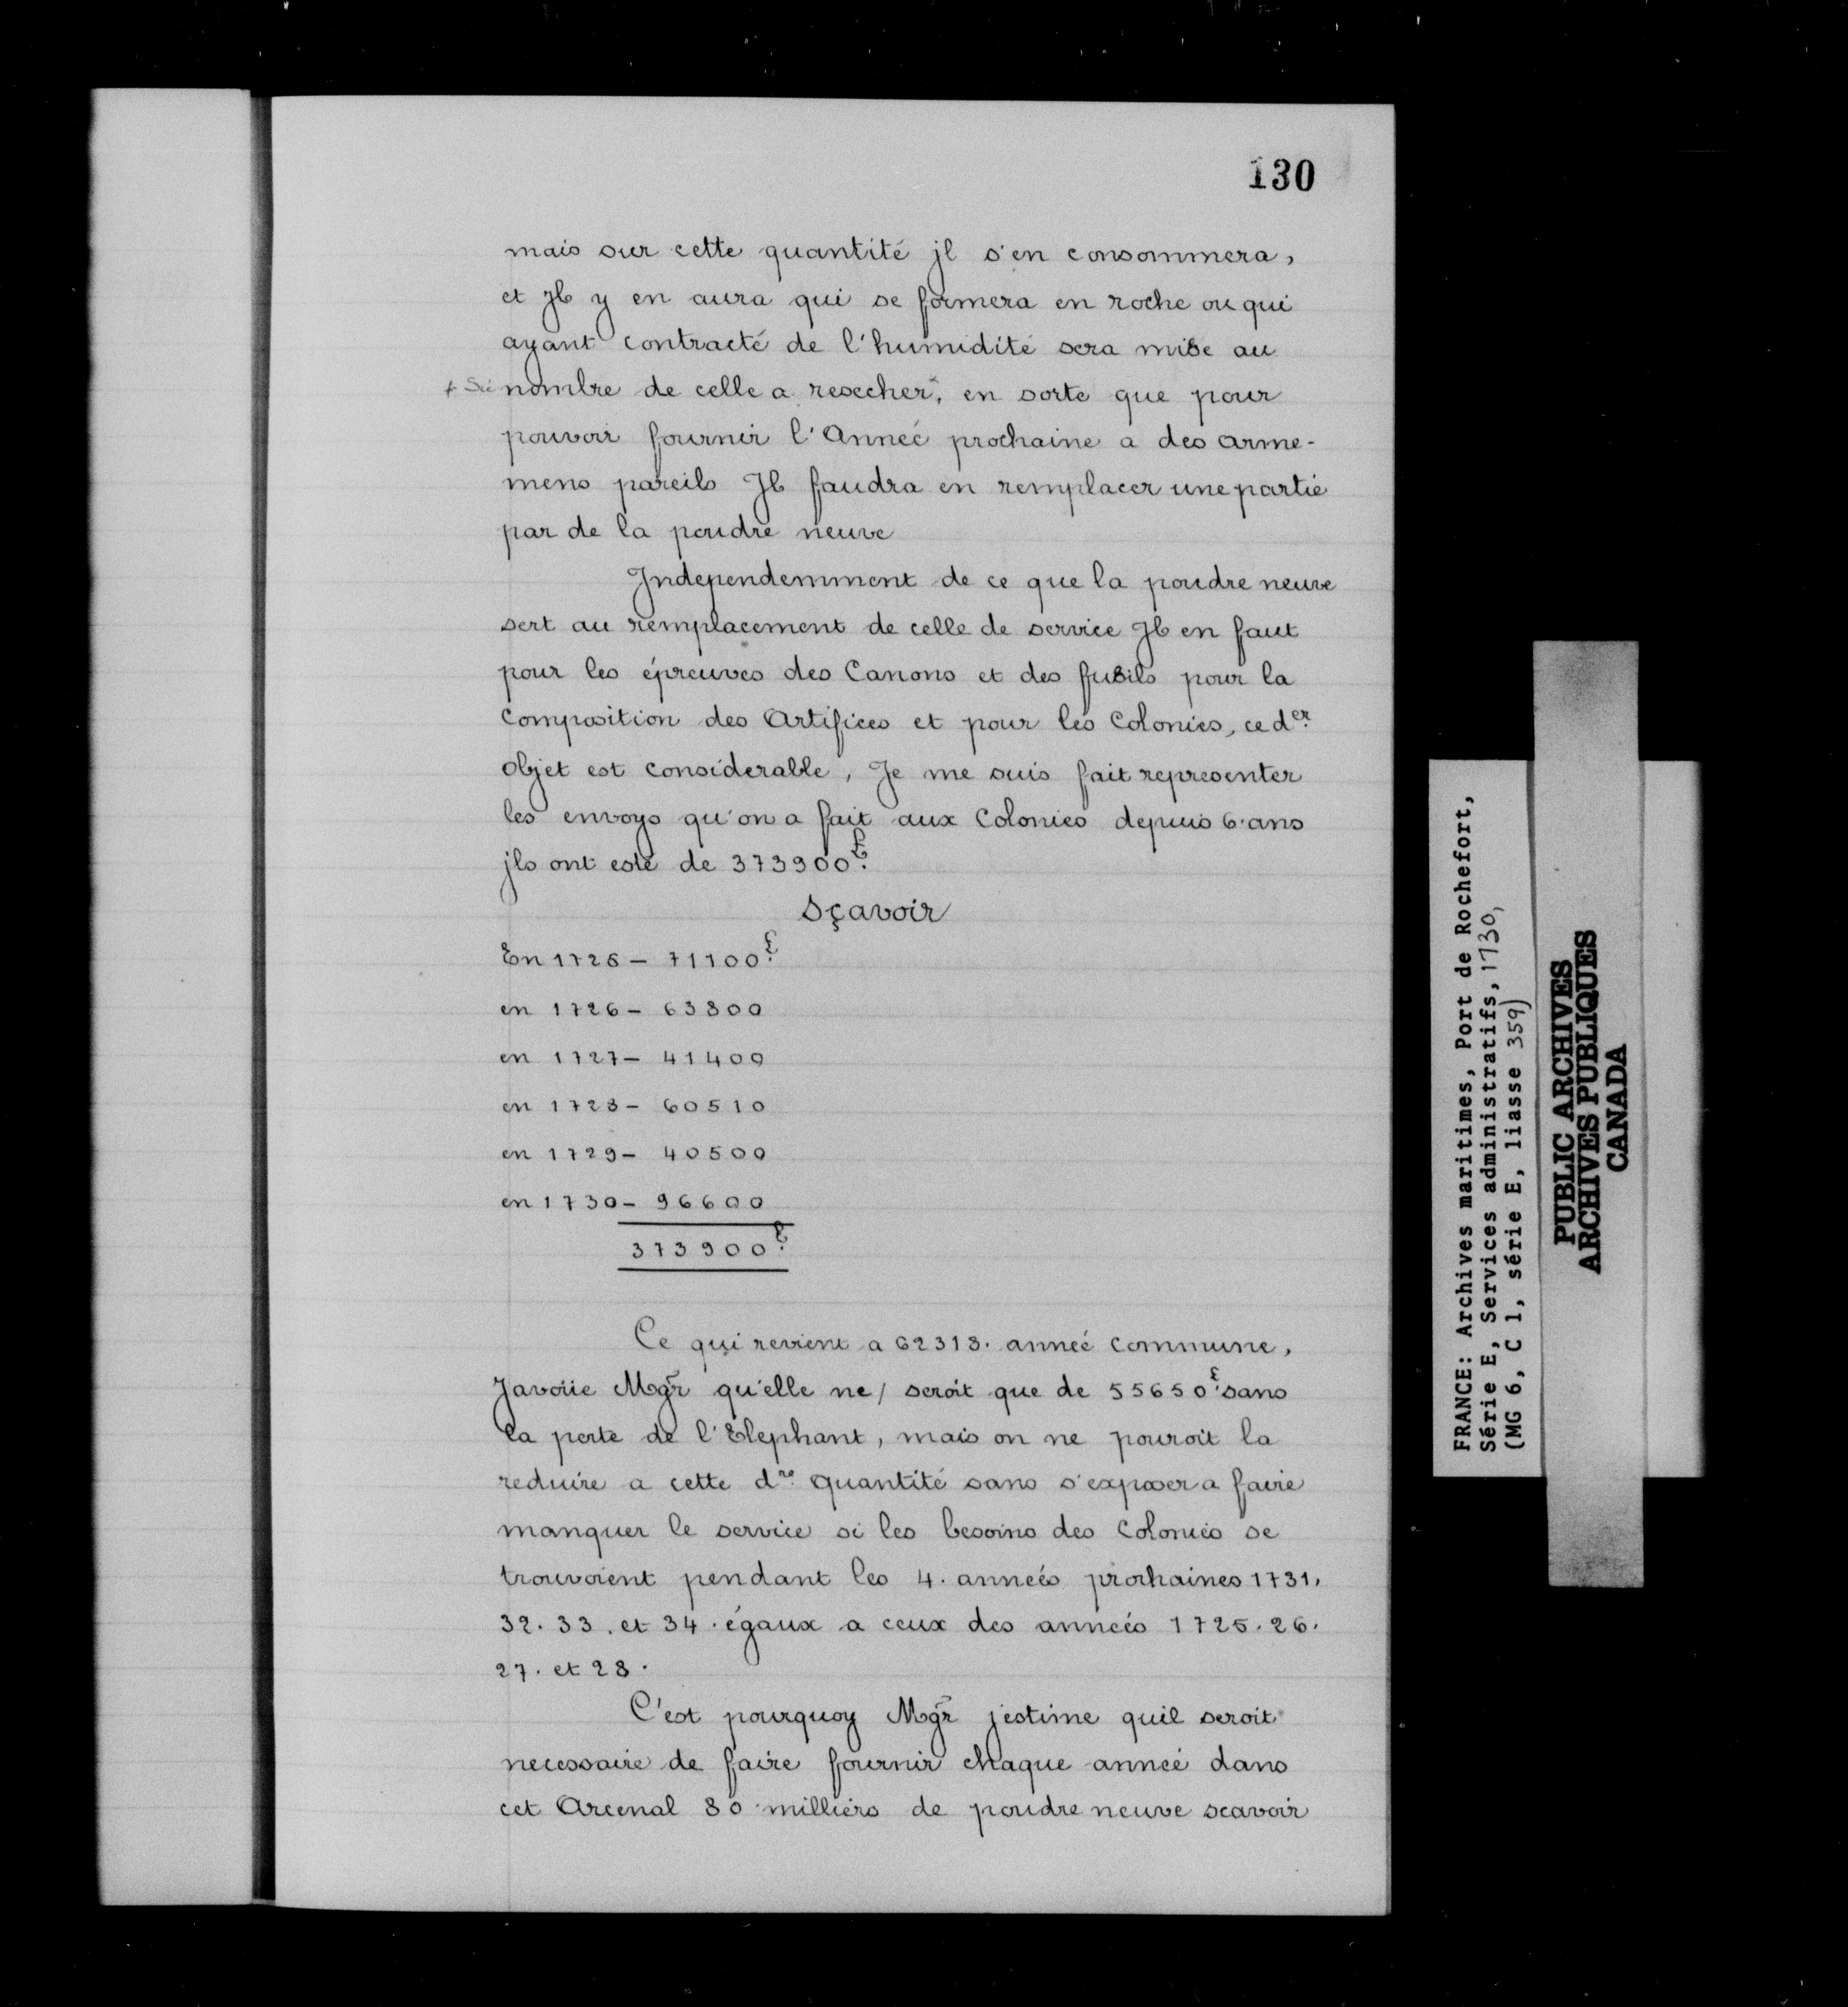 130
mais sur cette quantité jl s'en consommera,
et Jl y en aura qui se formera en roche ou qui
ayant contracté de l'humidité sera mise au
+ Sic nombre de celle a resecher+, en sorte que pour
pouvoir fournir l'Anneé prochaine a des arme-
mens pareils Jl faudra en remplacer une partie
par de la poudre neuve
Independemment de ce que la poudre neuve
sert au remplacement de celle de service Jl en faut
pour les épreuves des Canons et des fusils pour la
Composition des Artifices et pour les Colonies, ce der
objet est considerable, Je me suis fait representer
les envoys qu'on a fait aux Colonies depuis 6. ans
jls ont esté de 373900 £.
Sçavoir
En 1725 - 71100 £.
en 1726 - 63800
en 1727 - 41400
en 1728 - 60510
en 1729 - 40500
en 1730 - 96600
373900 £.
Ce qui revient a 62313. anneé commune,
Javoüe Mgr qu'elle ne / seroit que de 55650 £. sans
la perte de l'Elephant, mais on ne pouroit la
reduire a cette dre. quantité sans s'exposer a faire
manquer le service si les besoins des Colonies se
trouvoient pendant les 4. anneés prochaines 1731.
32. 33. et 34. égaux a ceux des anneés 1725. 26.
27. et 28.
C'est pourquoy Mgr j'estime quil seroit
necessaire de faire fournir chaque anneé dans
cet Arcenal 80 milliers de poudre neuve scavoir
FRANCE: Archives maritimes, Port de Rochefort,
Série E, Services administratifs, 1730,
(MG 6, C 1, série E, liasse 359)
PUBLIC ARCHIVES
ARCHIVES PUBLIQUES
CANADA